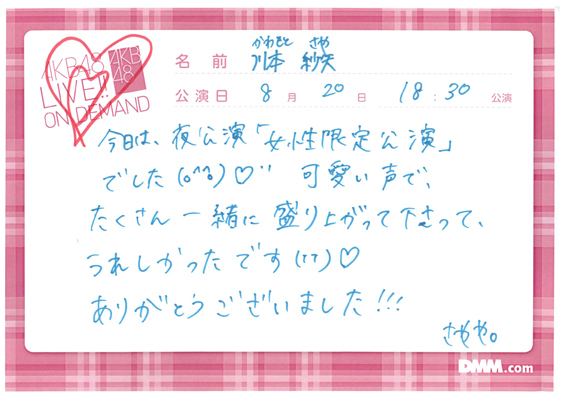 AKB48
LIVE!!
ON DEMAND
AKB
48
かわもと さや
名前 川本 紗矢
公演日 8月20日 18:30 公演
今日は、夜公演「女性限定公演」
でした(o^^o)♡¨ 可愛い声で、
たくさん一緒に盛り上がって下さって、
うれしかったです(TT)♡
ありがとうございました!!!
さやや。
DMM.com